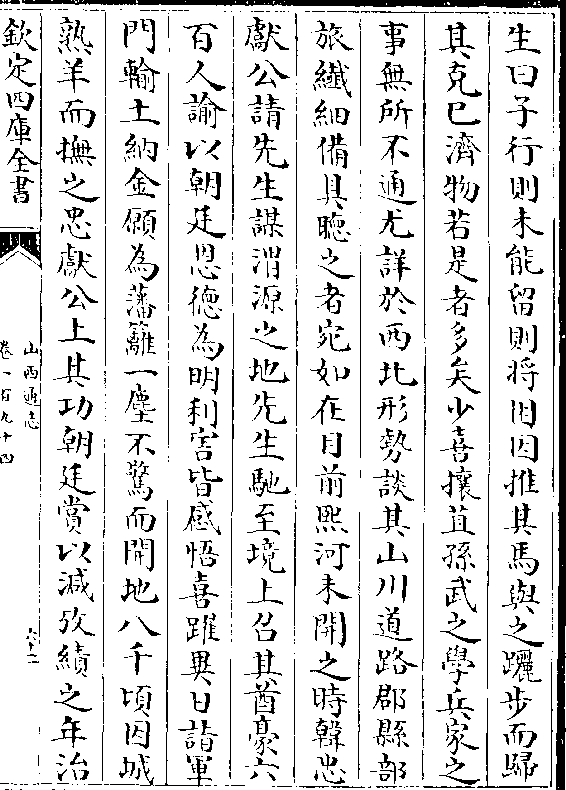 生曰子行則未能留則將困因推其馬與之躧步而歸
其克已濟物若是者多矣少喜攘苴孫武之學兵家之
事無所不通尤詳於西北形勢談其山川道路郡縣部
旅纖細備具聽之者宛如在目前熙河未開之時韓忠
獻公請先生謀渭源之地先生馳至境上召其酋豪六
百人諭以朝廷恩德為明利害皆感悟喜躍異日詣軍
門輸土納金願為藩籬一塵不驚而開地八千頃因城
熟羊而撫之忠獻公上其功朝廷賞以減攷績之年治
欽定四庫全書
山西通志
卷一百九十四
六十二